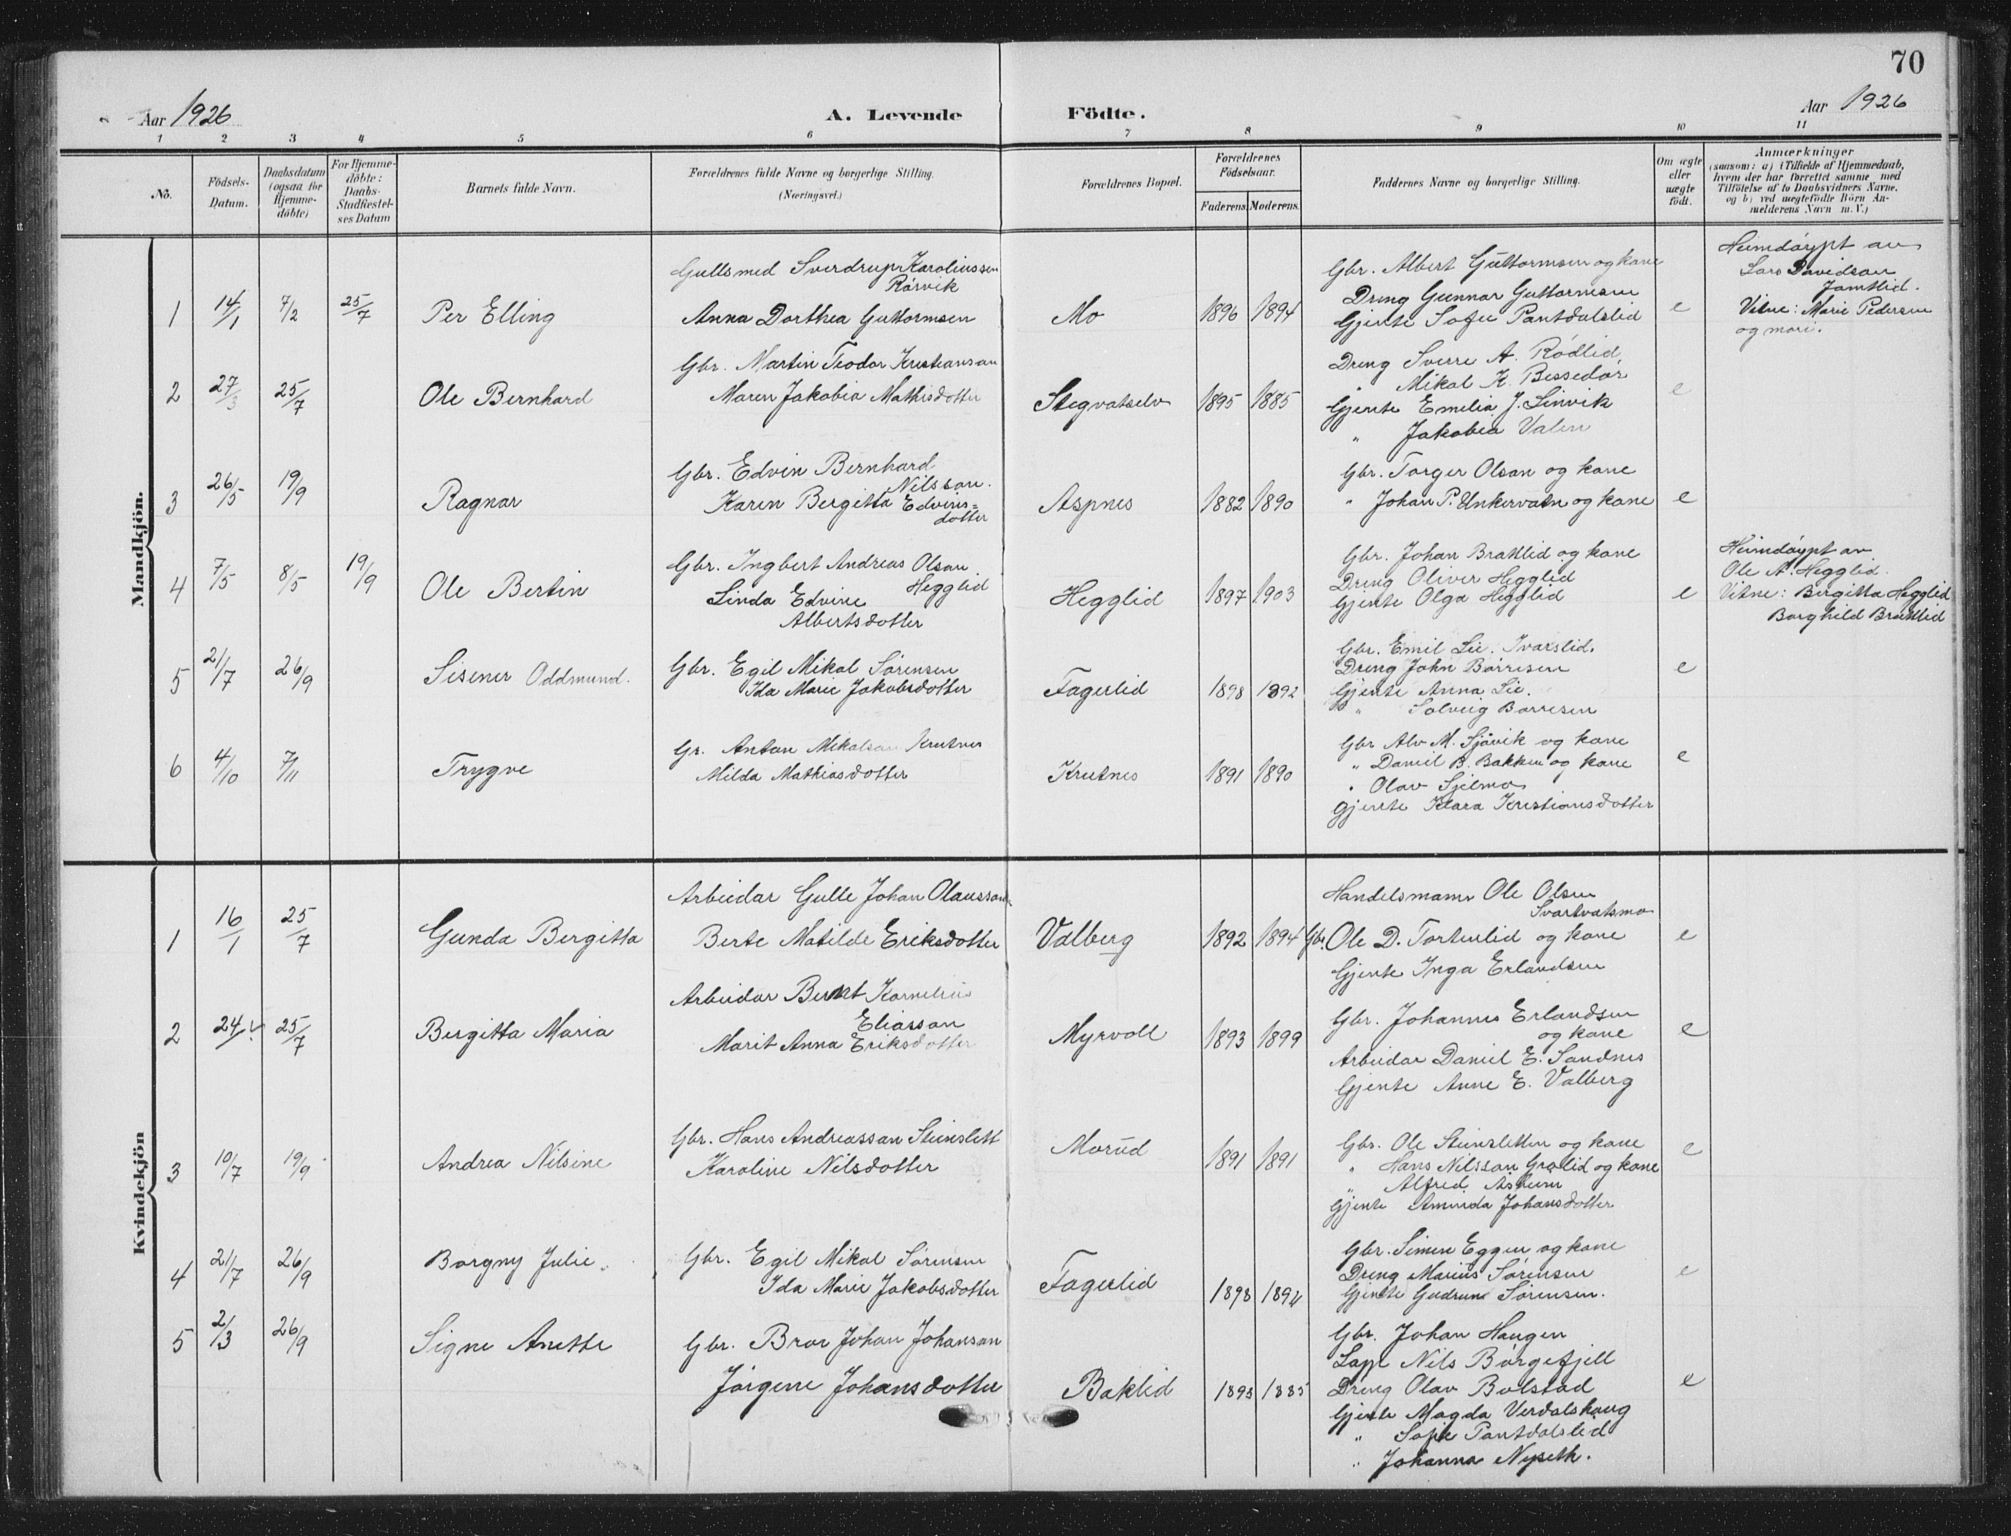 70
Aar 1926
A. Levende Födte.
Aar 1926
1 2 3 4 5 6 7 8 9 10 11
No.
Födsels-Datum.
Daabsdatum (ogsaa for Hjemme-döbte)
For Hjemme-döbte: Daabs-Stadfæstel-ses Datum
Barnets fulde Navn.
Forældrenes fulde Navne og borgerlige Stilling. (Næringsvei.)
Forældrenes Bopæl.
Forældrenes Födselsaar.
Faderens. Moderens.
Faddernes Navne og borgerlige Stilling.
Om ægte eller uægte födt.
Anmærkninger
(saasom: a) i Tilfælde af Hjemmedaab,
hvem der har forrettet samme, med
Tilföielse af to Daabsvidners Navne,
og b) ved uægtefödte Börn An-
melderens Navn m. V.)
Mandkjön.
1 14/1 7/2 25/7 Per Elling
Gullsmed Sverdrup Karoliussen
Rørvik
Anna Dorthea Guttormsen
Mo 1896 1894
Gbr. Albert Guttormsen og kone
Dreng Gunnar Guttormsen
Gjente Sofie Pantdalslid
e
Heimdøypt av
Lars Davidson
Jamtlid.
Vitne: Marie Pedersen
og mori.
2 27/3 25/7 Ole Bernhard
Gbr. Martin Teodor Kristiansan
Maren Jakobia Mathisdotter
Stegvatselv 1895 1885
Dreng Sverre A. Rødlid
" Mikal K. Bessedør
Gjente Emelia J. Linvik
" Jakobea Valen
e
3 26/5 19/9 Ragnar
Gbr. Edvin Bernhard
Nilssan.
Karen Bergitta Edvins=
dotter
Aspnes 1882 1890
Gbr. Torger Olsan og kone
" Johan P. Unkervatn og kone
e
4 7/5 8/5 19/9 Ole Bertin
Gbr. Ingbert Andreas Olsan
Hegglid
Linda Edvine
Albertsdotter
Hegglid 1897 1903
Gbr. Johan Brattlid og kone
Dreng Oliver Hegglid
Gjente Olga Hegglid
e
Heimdøypt av
Ole A. Hegglid.
Vitne: Bergitta Hegglid
Borghild Brattlid
5 21/7 26/9 Sisener Oddmund.
Gbr. Egil Mikal Sørensen
Ida Marie Jakobsdotter
Fagerlid 1898 1892
Gbr. Emil Lie. Ivarslid.
Dreng John Børresen
Gjente Anna Lie.
" Solveig Børresen
e
6 4/10 7/11 Trygve
Gr. Anton Mikalsan Krutnes
Milda Mathiasdotter
Krutnes 1891 1890
Gbr Alv M. Sjåvik og kone
" Daniel B. Bakken og kone
" Olav Sjelmo
Gjente Klara Kristiansdotter
e
Kvindekjön
1 16/1 25/7 Gunda Bergitta
Arbeidar Gulle Johan Olaussan
Berte Matilde Eriksdotter
Valberg 1892 1894
Handelsmann Ole Olsen
Svartvatsmo
Gbr. Ole D. Tortenlid og kone
Gjente Inga Erlandsen
e
2 24/ 25/7 Bergitta Maria
Arbeidar Bernt Kornelius
Eliassan
Marit Anna Eriksdotter
Myrvoll 1893 1899
Gbr. Johannes Erlandsen
og kone
Arbeidar Daniel E. Sandnes
Gjente Anne E. Valberg
e
3 10/7 19/9 Andrea Nilsine
Gbr. Hans Andreassan Steinslett
Karoline Nilsdotter
Morud 1891 1891
Gbr. Ole Steinsletten og kone
" Hans Nilssan Grølid og kone
" Alfred
Gjente Aminda Johansdotter
e
4 21/7 26/9 Borgny Julie.
Gbr. Egil Mikal Sørensen
Ida Marie Jakobsdotter
Fagerlid 1898 1892
Gbr. Simen Eggen og kone
Dreng Marius Sørensen
Gjente Gudrun Sørensen.
e
5 2/3 26/9 Signe Anette
Gbr. Bror Johan Johansan
Jørgene Johansdotter
Baklid 1893 1885
Gbr. Johan Haugen
Lapl Nils Børgefjell
Dreng Olav Bolstad
Gjente Magda Verdalshaug
" Sofie Pantdalslid
" Johanna Nyseth.
e